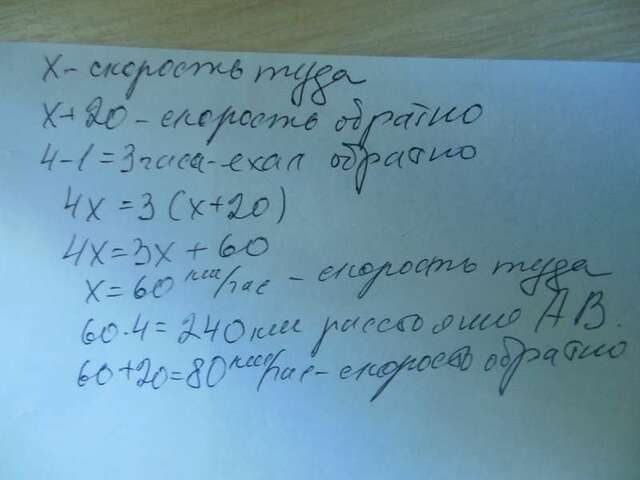 x - скорость туда
x+20 - скорость обратно
4-1=3 часа - ехал обратно
4x=3(x+20)
4x=3x+60
x=60 км/час - скорость туда
60·4=240 км расстояние AB.
60+20=80 км/час - скорость обратно